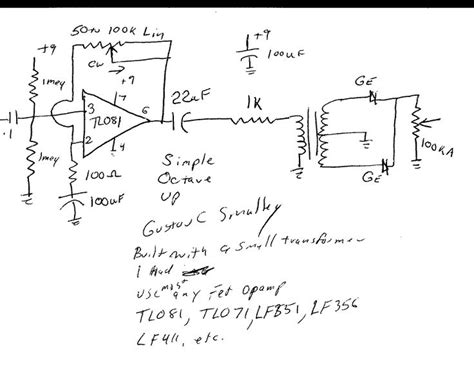 50n 100K Lin
+9
+9
100uF
1meg
cw
+9
7
GE
3
6
22uF
1K
TL081
.1
2
4
1meg
100Ω
100uF
100KA
GE
Simple
Octave
up
Gustavo C Smalley
Built with a small transformer
I had
use most any Fet Opamp
TL081, TL071, LF351, LF356
LF411, etc.